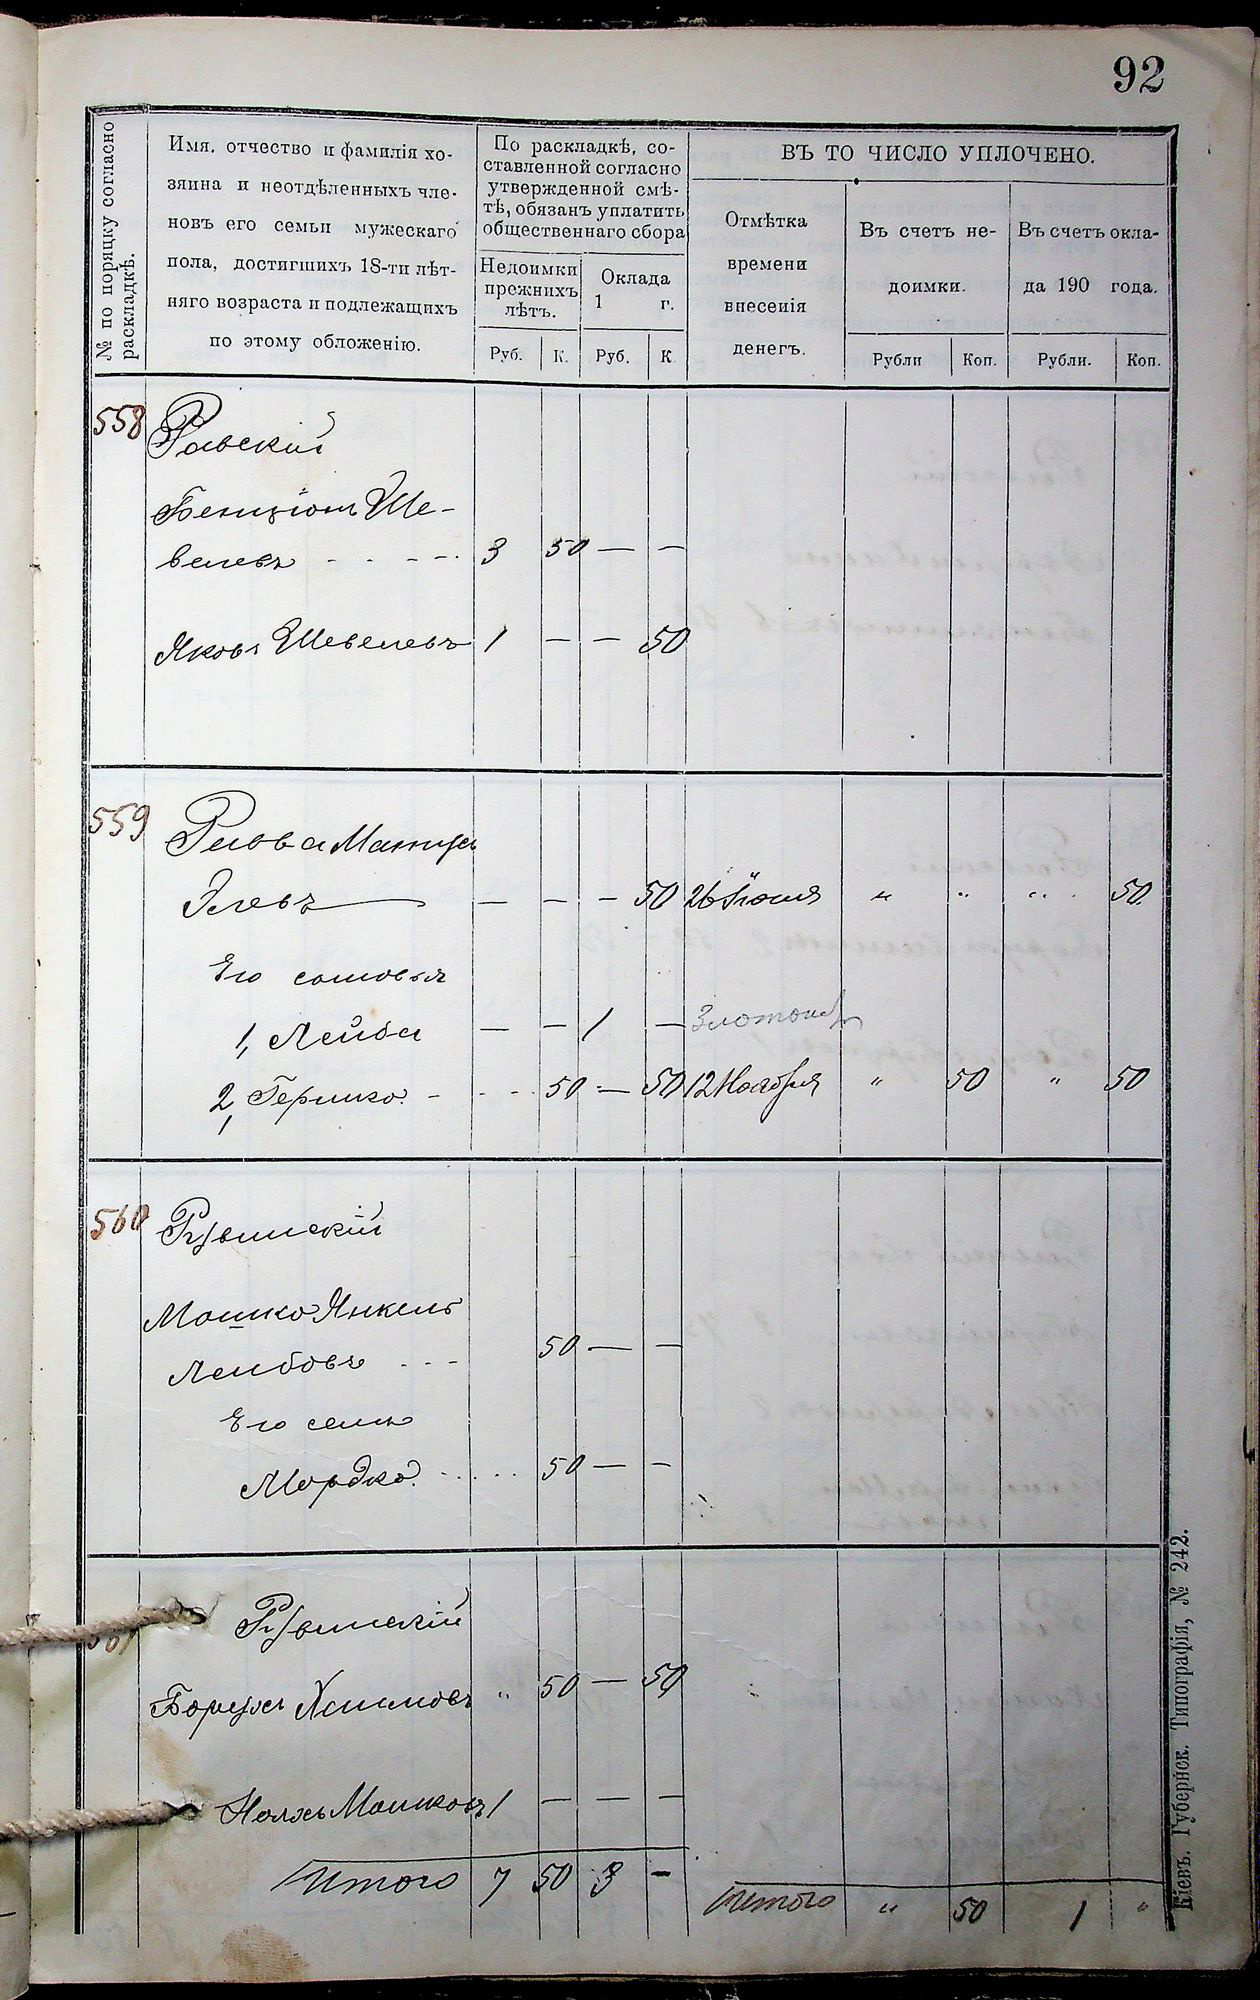 92
№ по порядку согласно раскладкѣ.
Имя, отчество и фамилія хо-
зяина и неотдѣленныхъ чле-
новъ его семьи мужескаго
пола, достигшихъ 18-ти лѣт-
няго возраста и подлежащихъ
по этому обложенію.
По раскладкѣ, со-
ставленной согласно
утвержденной смѣ-
тѣ, обязанъ уплатить
общественнаго сбора
Недоимки
прежнихъ
лѣтъ.
Оклада
1 г.
Руб. К. Руб. К.
ВЪ ТО ЧИСЛО УПЛОЧЕНО.
Отмѣтка
времени
внесенія
денегъ.
Въ счетъ не-
доимки.
Въ счетъ окла-
да 190 года.
Рубли Коп. Рубли. Коп.
558 Равскій
Бенціонъ Ше-
велевъ - - - - 3 50 — —
Яковъ Шевелевъ 1 — — 50
559
Элевъ — — — 50 26 Іюня " " " 50
Его сыновья
1, Лейба — — 1 —
2, Гершко - - - 50 — 50 12 Ноября " 50 " 50
560
Мошко Янкель
Лейбовъ - - - 50 — —
Его сынъ
Мордко. - - - - 50 — —
561
Борухъ Хаимовъ " 50 — 50
Мошковъ 1 — — —
Итого 7 50 3 — Итого " 50 1 "
Кіевъ. Губернск. Типографія, № 242.